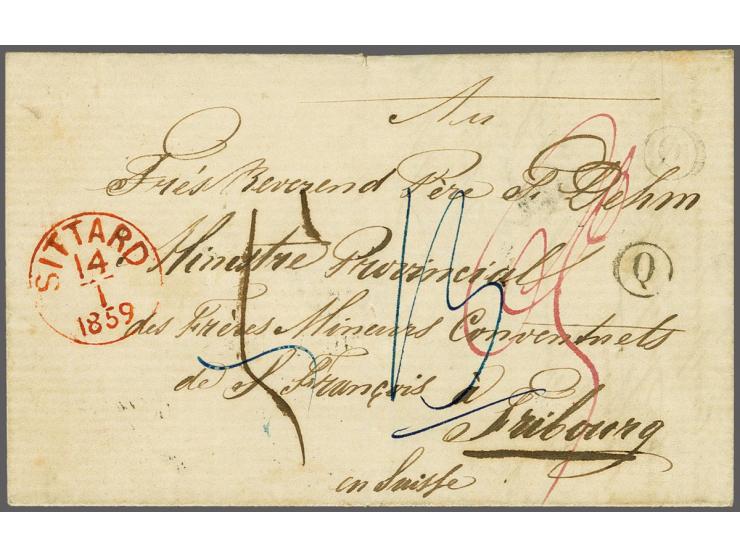 Au
Très Reverend Père F. Dehm
Ministre Provincial
des Frères Mineurs Conventuels
de S François à
Fribourg
en Suisse
SITTARD
14
1
1859
Q